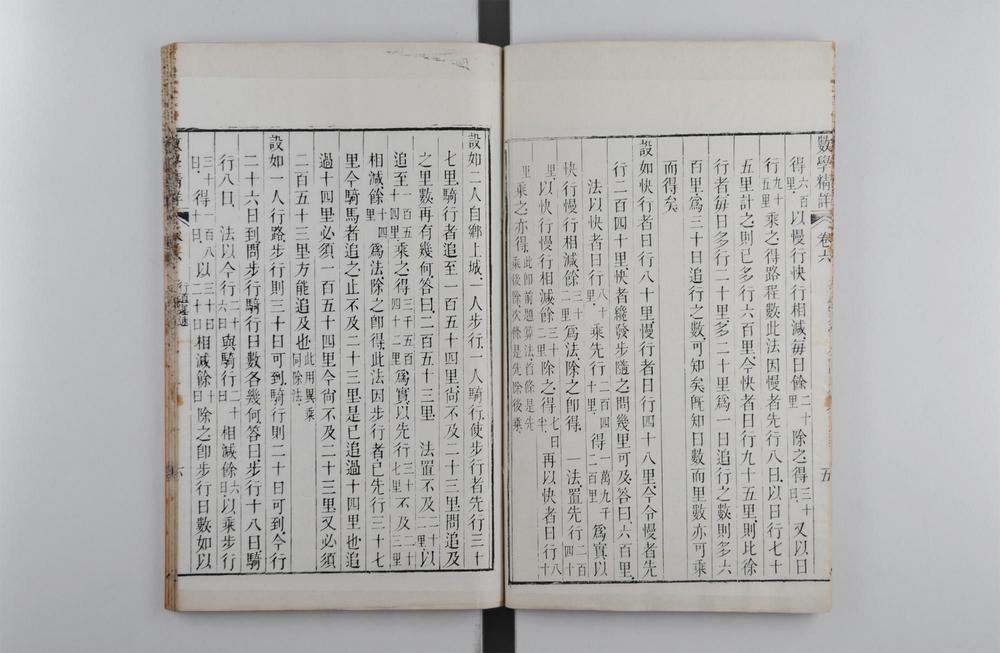 數學精詳 卷六 五
得六百里以慢行快行相減每日餘二十里除之得三十日又以日
行九十五里乘之得路程數此法因慢者先行八日以日行七十
五里計之則已多行六百里今快者日行九十五里則比徐
行者每日多行二十里多二十里爲一日追行之數則多六
百里爲三十日追行之數可知矣旣知日數而里數亦可乘
而得矣
設如快行者日行八十里慢行者日行四十八里今令慢者先
行二百四十里快者纔發步隨之問幾里可及答曰六百里
法以快者日行八十里乘先行二百四十里得一萬九千二百里爲實以
快行慢行相減餘三十二里爲法除之卽得 一法置先行二百四十
里以快行慢行相減餘三十二里除之得七日半再以快者日行八十
里乘之亦得此卽前題算法首條是先乘後除次條是先除後乘
設如二人自鄉上城一人步行一人騎行使步行者先行三十
七里騎行者追至一百五十四里尙不及二十三里問追及
之里數再有幾何答曰二百五十三里 法置不及二十三里以
追至一百五十四里乘之得三千五百四十二里爲實以先行三十七里不及二十三里
相減餘十四里爲法除之卽得此法因步行者已先行三十七
里今騎馬者追之止不及二十三里是已追過十四里也追
過十四里必須一百五十四里今尙不及二十三里又必須
二百五十三里方能追及也此用異乘同除法
設如一人行路步行則三十日可到騎行則二十日可到今行
二十六日到問步行騎行日數各幾何答曰步行十八日騎
行八日 法以今行二十六日與騎行二十日相減餘六日以乘步行
三十日得一百八十日以三十日二十日相減餘十日除之卽步行日數如以